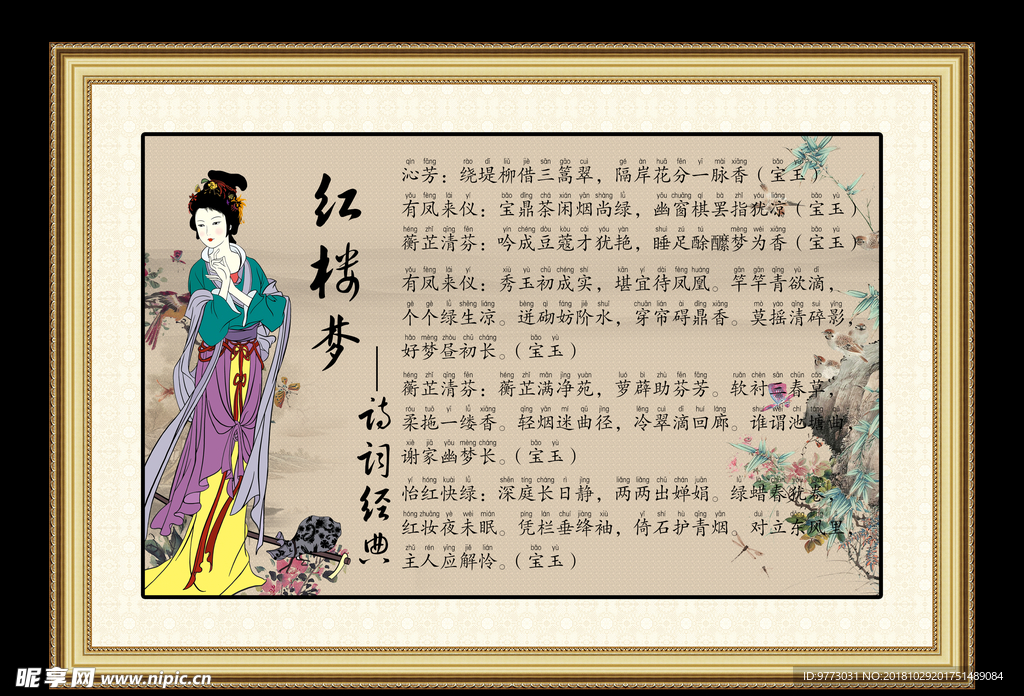 红楼梦
——诗词经典
qìn fāng rào dī liǔ jiè sān gāo cuì gé àn huā fēn yī mài xiāng bǎo yù
沁芳：绕堤柳借三篙翠，隔岸花分一脉香（宝玉）
yǒu fèng lái yí bǎo dǐng chá xián yān shàng lǜ yōu chuāng qí bà zhǐ yóu liáng bǎo yù
有凤来仪：宝鼎茶闲烟尚绿，幽窗棋罢指犹凉（宝玉）
yín chéng dòu kòu cái yóu yàn shuì zú mèng wéi xiāng bǎo yù
蘅芷清芬：吟成豆蔻才犹艳，睡足酴醾梦为香（宝玉）
yǒu fèng lái yí xiù yù chū chéng shí kān yí dài fèng huáng gān gān qīng yù dī
有凤来仪：秀玉初成实，堪宜待凤凰。竿竿青欲滴，
gè gè lǜ shēng liáng bèng qì fáng jiē shuǐ chuān lián ài dǐng xiāng mò yáo qīng suì yǐng
个个绿生凉。迸砌妨阶水，穿帘碍鼎香。莫摇清碎影，
hǎo mèng zhòu chū cháng bǎo yù
好梦昼初长。（宝玉）
héng zhǐ qīng fēn héng zhǐ mǎn jìng yuàn luó bì zhù fēn fāng ruǎn chèn sān chūn cǎo
蘅芷清芬：蘅芷满净苑，萝薜助芬芳。软衬三春草，
róu tuō yī lǚ xiāng qīng yān mí qū jìng lěng cuì dī huí láng shuí wèi chí táng qū
柔拖一缕香。轻烟迷曲径，冷翠滴回廊。谁谓池塘曲，
xiè jiā yōu mèng cháng bǎo yù
谢家幽梦长。（宝玉）
yí hóng kuài lǜ shēn tíng cháng rì jìng liǎng liǎng chū chán juān lǜ là chūn yóu juǎn
怡红快绿：深庭长日静，两两出婵娟。绿蜡春犹卷，
hóng zhuāng yè wèi mián píng lán chuí jiàng xiù yǐ shí hù qīng yān duì lì dōng fēng lǐ
红妆夜未眠。凭栏垂绛袖，倚石护青烟。对立东风里，
zhǔ rén yīng jiě lián bǎo yù
主人应解怜。（宝玉）
昵享网 www.nipic.cn
ID:9773031 NO:20181029201751489084